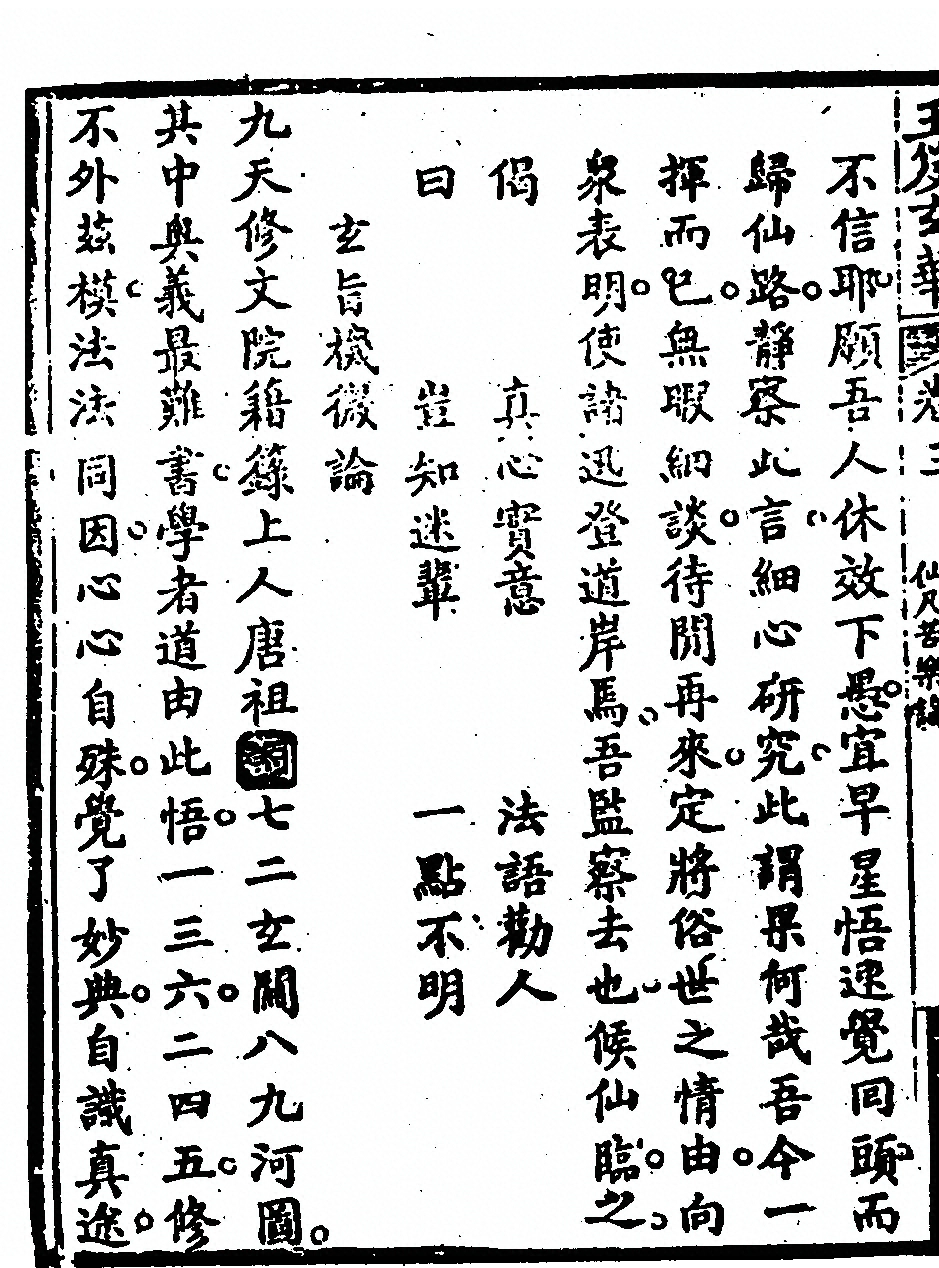 玉笈玄華 卷三 仙凡苦樂論
不信耶願吾人休效下愚宜早星悟速覺回頭而
歸仙路靜察此言細心研究此謂果何哉吾今一
揮而已無暇細談待閒再來定將俗世之情由向
衆表明使諸迅登道岸焉吾監察去也候仙臨之
偈 真心寳意 法語勸人
曰 豈知迷輩 一點不明
玄旨機微論
九天修文院籍籙上人唐祖 七二玄關八九河圖
其中奥義最難書學者道由此悟一三六二四五修
不外玆模法法同因心心自殊覺了妙典自識真途